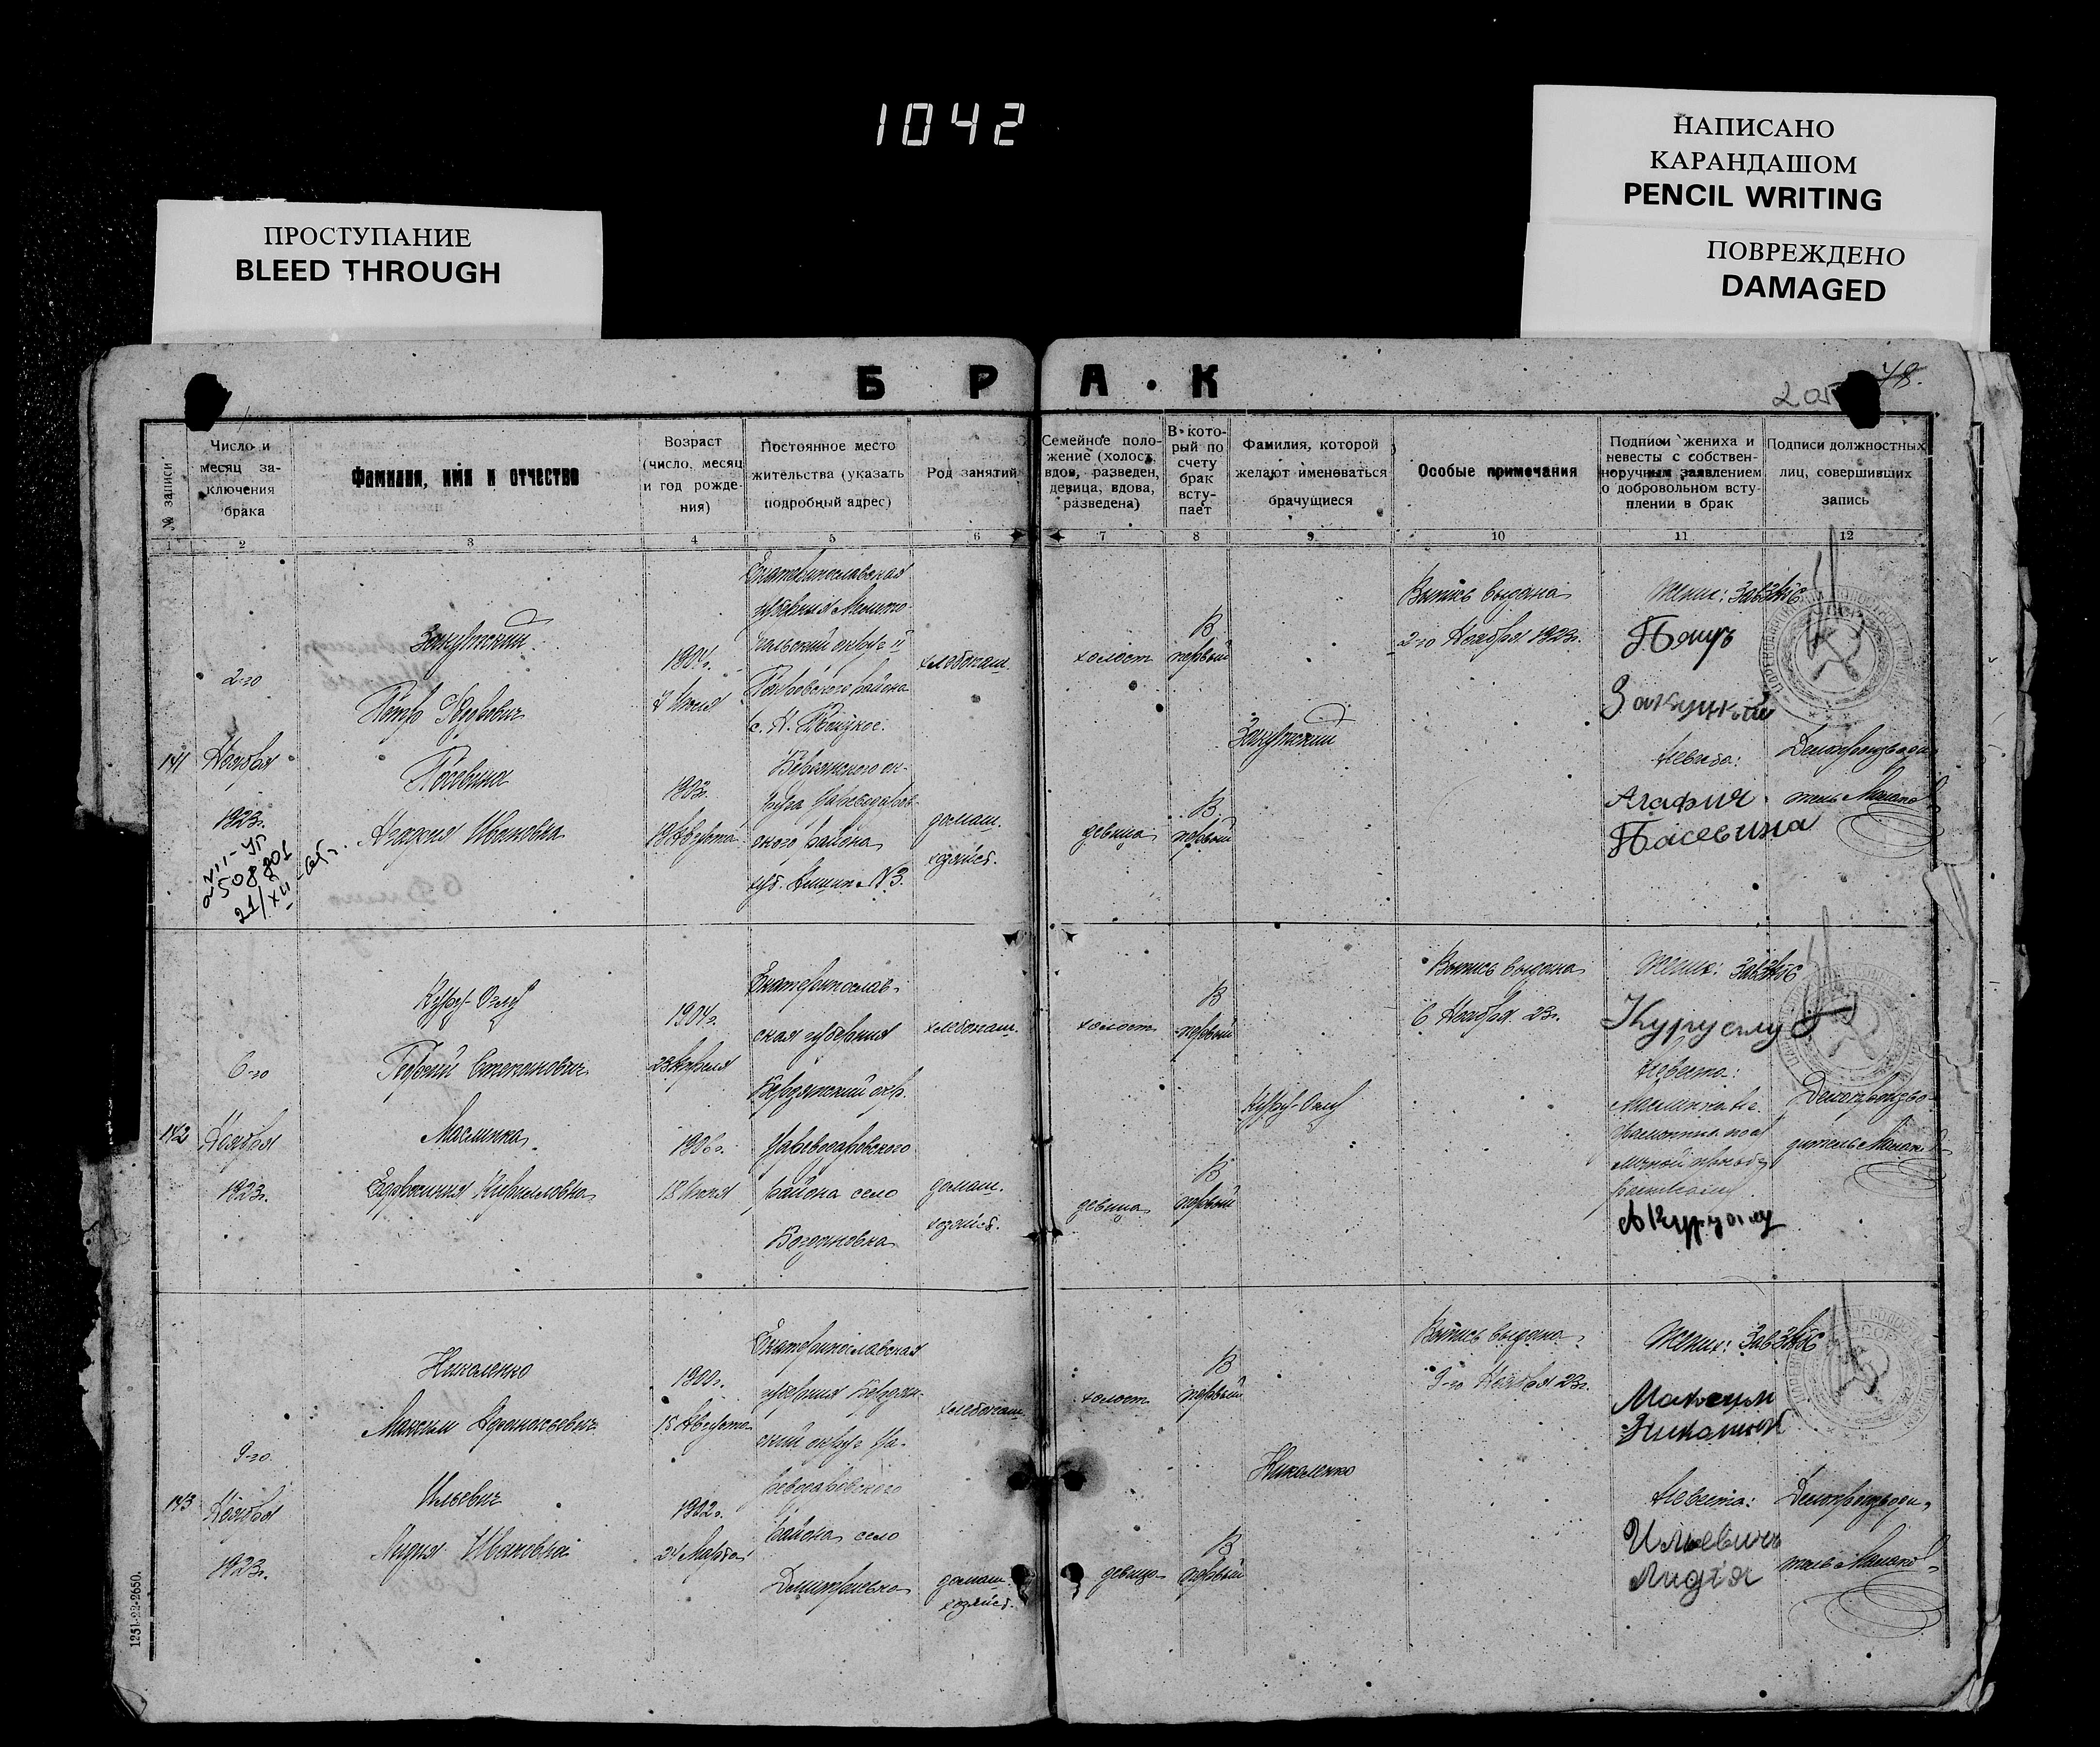 1042
НАПИСАНО
КАРАНДАШОМ
PENCIL WRITING
ПРОСТУПАНИЕ
BLEED THROUGH
ПОВРЕЖДЕНО
DAMAGED
БРАК
48.
№ записи
Число и
месяц за-
ключения
брака
Фамилия, имя и отчество
Возраст
(число, месяц
и год рожде-
ния)
Постоянное место
жительства (указать
подробный адрес)
Род занятий
Семейное поло-
жение (холост,
вдов, разведен,
девица, вдова,
разведена)
В кото-
рый по
счету
брак
всту-
пает
Фамилия, которой
желают именоваться
брачущиеся
Особые примечания
Подписи жениха и
невесты с собствен-
норучным заявлением
о добровольном всту-
плении в брак
Подписи должностных
лиц, совершивших
запись
1 2 3 4 5 6 7 8 9 10 11 12
141
2-го
Ноября
1923г.
508801
Закутский
Петр Федорович
Агафия Ивановна
7 Июля
1903г.
19 Августа
Екатеринославская
губерния Мелито-
польский округ
района
Бердянского ок-
руга Цареводаров-
ского района
хлебопаш.
домаш.
хозяйст.
холост
девица
В
первый
В
первый
Закутский
Выпись выдана
2-го Ноября 1923г.
Жених: ЗавЗАГС
Петр
Закуцкий
Невеста:
Агафия
Пасевина
Делопроизводи-
тель
142
6-го
Ноября
1923г.
Куру-Оглу
Георгий Степанович
Маслинка
Ефросиния Кирилловна
1904г.
23 Апреля
1906г.
Екатеринослав-
ская губерния
Бердянский окр.
Цареводаровского
района село
Богдановка
хлебопаш.
домаш.
хозяйст.
холост
девица
В
первый
В
первый
Куру-Оглу
Выпись выдана
6 Ноября 23г.
Жених: ЗавЗАГС
Куруоглу
Невеста:
Делопроизво-
дитель
143
9-го
Ноября
1923г.
Николенко
Максим Афанасьевич
Ильевич
Лидия Ивановна
1900г.
15 Августа
1902г.
24 Марта
Екатеринославская
губерния Бердян-
ский округ Ца-
реводаровского
района село
Дмитровка
хлебопаш.
домаш.
хозяйст.
холост
девица
В
первый
В
первый
Николенко
Выпись выдана
9-го Ноября 23г.
Жених: ЗавЗАГС
Максим
Невеста:
Ильевич
Лидія
Делопроизводи-
тель
1251-22-2650.